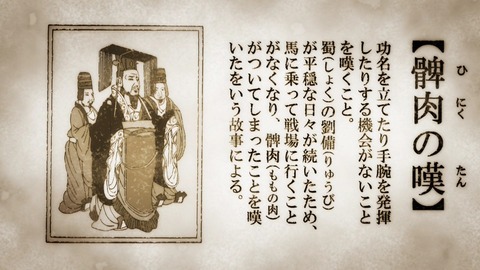 【髀肉の嘆】
ひ にく たん
功名を立てたり手腕を発揮
したりする機会がないこと
を嘆くこと。
蜀(しょく)の劉備(りゅうび)
が平穏な日々が続いたため、
馬に乗って戦場に行くこと
がなくなり、髀肉(ももの肉)
がついてしまったことを嘆
いたをいう故事による。